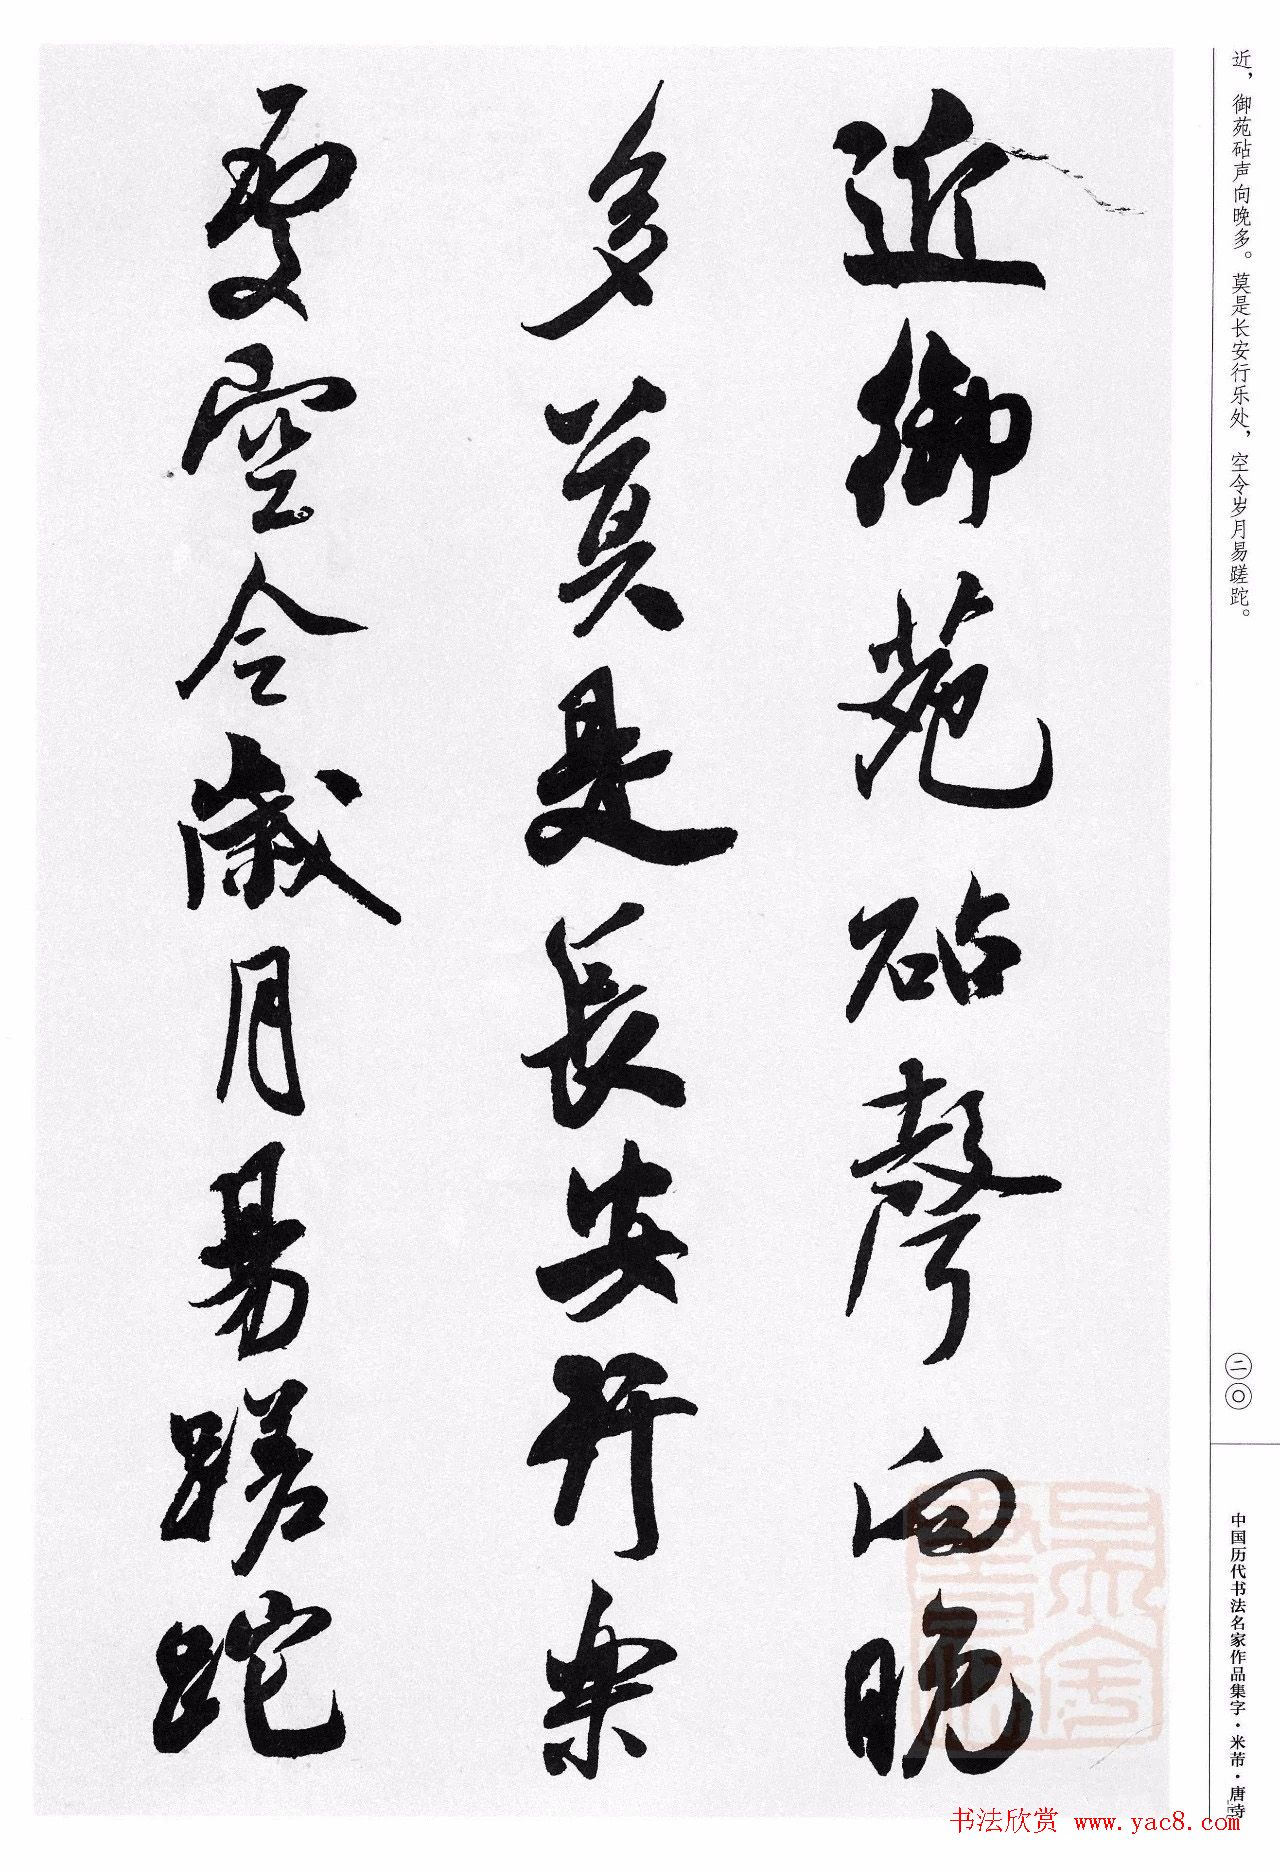 近，御苑砧声向晚多。莫是长安行乐处，空令岁月易蹉跎。
二〇
中国历代书法名家作品集字·米芾·唐诗
近御苑砧聲向晚
多莫是長安行樂
處空令歲月易蹉跎
书法欣赏 www.yac8.com